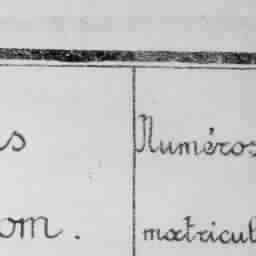 s Numéros
om. matricul